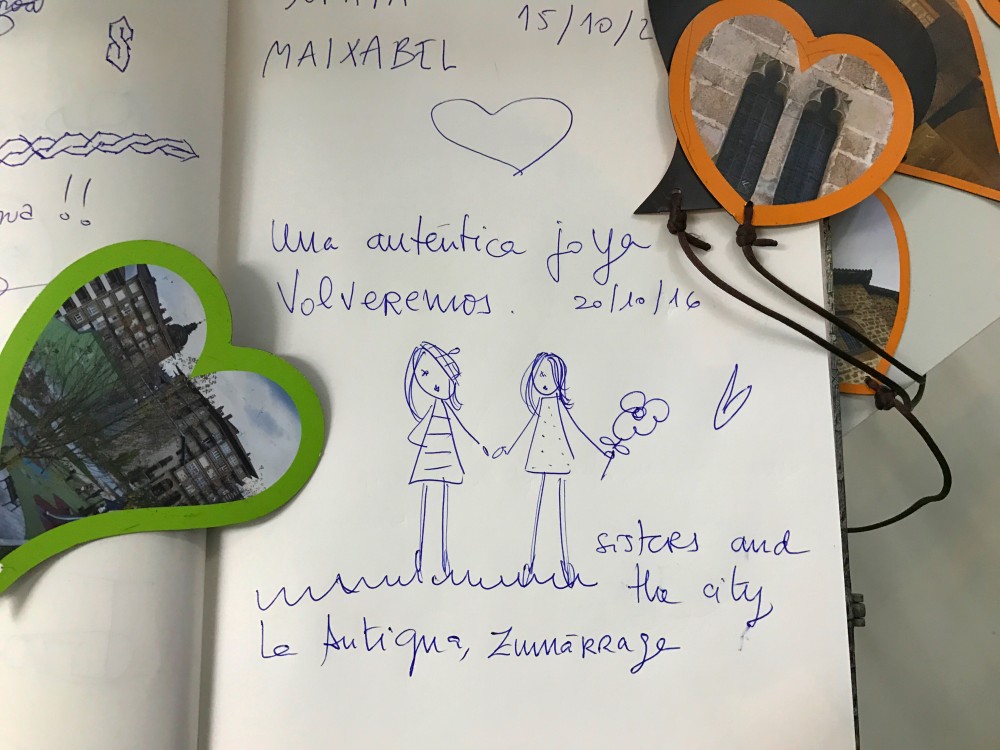 S
!!
15/10/2
MAIXABEL
Una auténtica joya
Volveremos. 20/10/16
sisters and
the city
La Antigua, Zumárraga